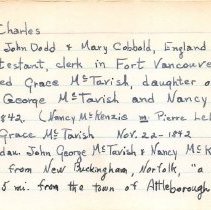 Charles
John Dodd & Mary Cobbald, England
testant, clerk in Fort Vancouver
ed Grace McTavish, daughter o
George McTavish and Nancy
1842. (Nancy McKenzie m Pierre Le
Grace McTavish Nov. 22-1842
dau. John George McTavish & Nancy McK
from New Buckingham, Norfolk, "a
5 mi. from the town of Attleborough